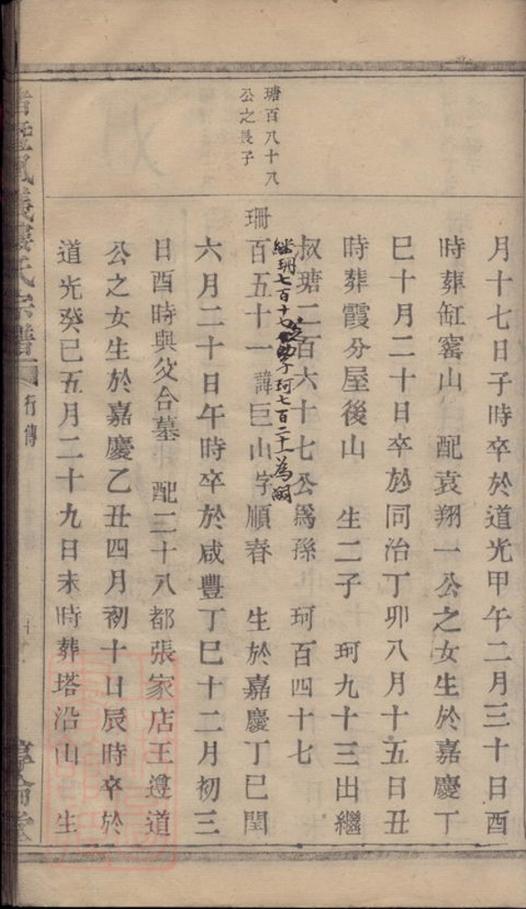 月十七日子時卒於道光甲午二月三十日酉
時葬缸窰山 配袁翔一公之女生於嘉慶丁
巳十月二十日卒於同治丁卯八月十五日丑
時葬霞分屋後山 生二子 珂九十三出繼
叔瑭二百六十七公爲孫 珂百四十七
繼珊七百十七之幼子珂七百二十一為嗣
瑭百八十八
公之長子
珊百五十一 諱巨山字順春 生於嘉慶丁巳閏
六月二十日午時卒於咸豐丁巳十二月初三
日酉時與父合墓 配二十八都張家店王遵道
公之女生於嘉慶乙丑四月初十日辰時卒於
道光癸巳五月二十九日未時葬塔沿山 生
氏宗譜 行傳